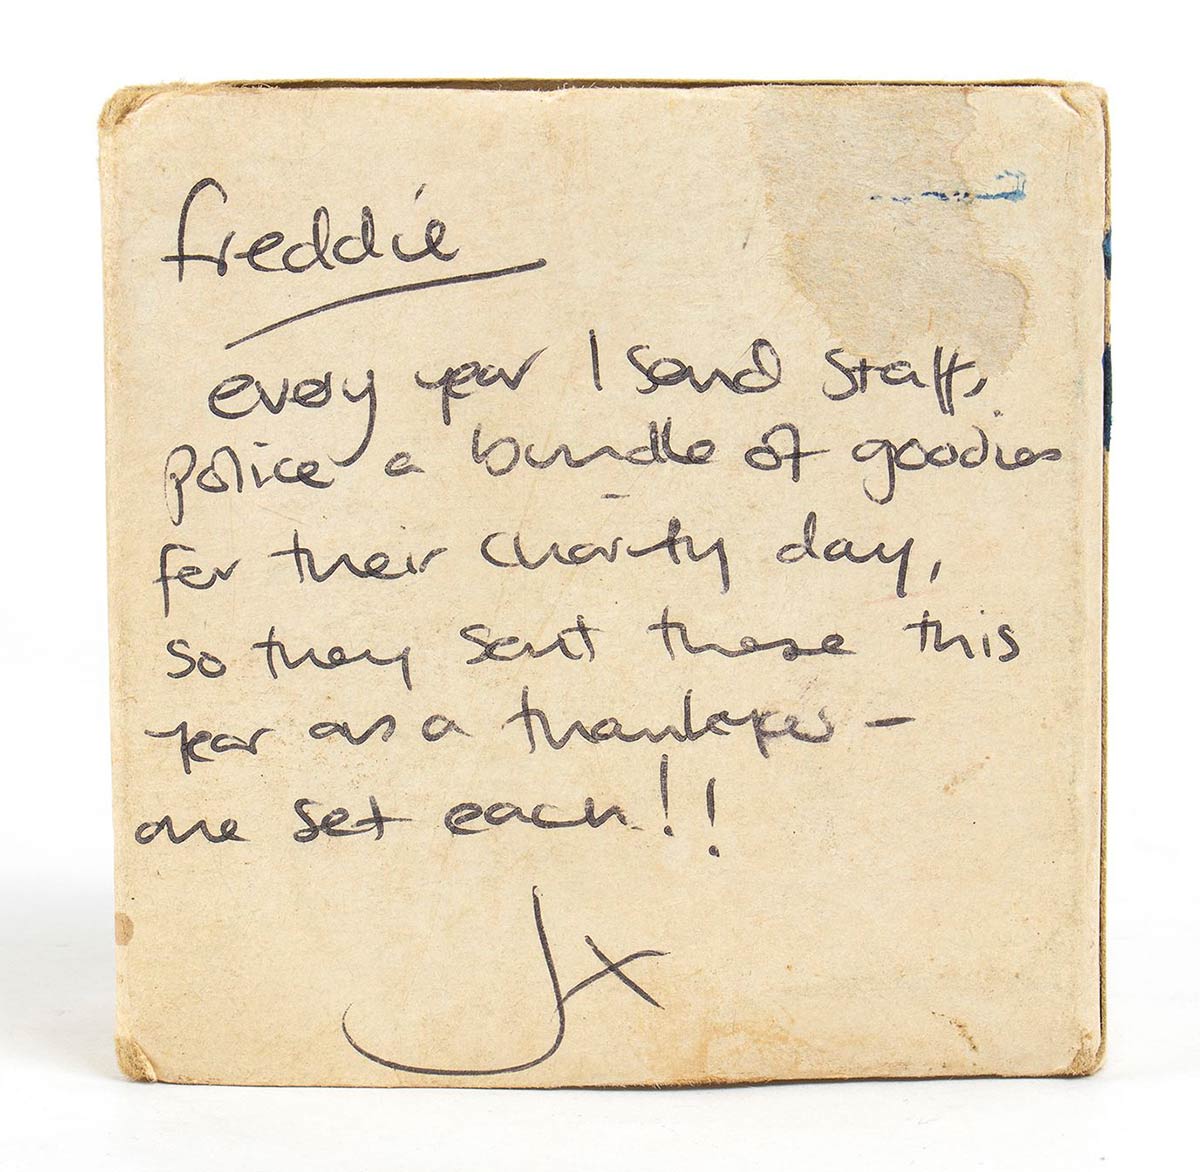 freddie
every year I send Staffs,
police a bundle of goodies
for their charity day,
so they sent these this
year as a thankyou –
one set each!!
Jx